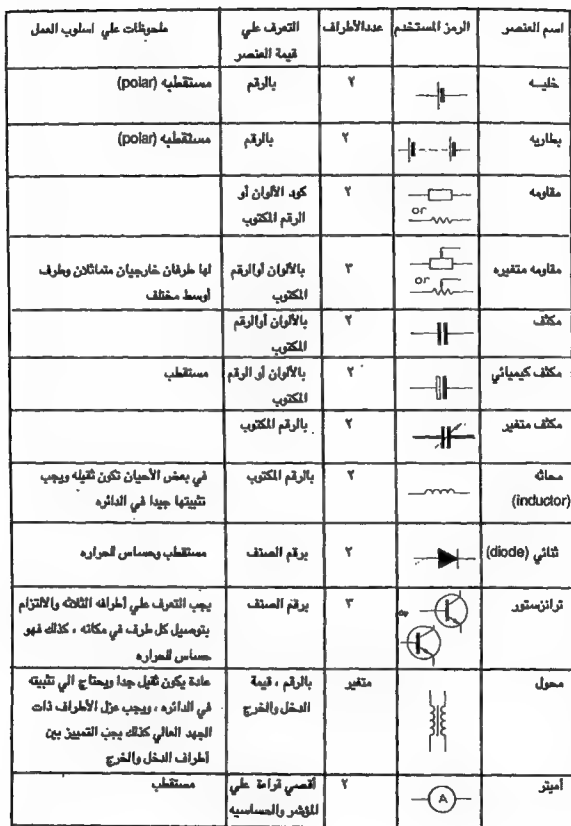 اسم العنصر	الرمز المستخدم	عددالأطراف	التعرف علي	ملحوظات علي اسلوب العمل
قيمة العنصر
خليه	٢	بالرقم	مستقطبه (polar)
بطاريه	٢	بالرقم	مستقطبه (polar)
مقاومه	or	٢	كود الألوان أو
الرقم المكتوب
مقاومه متغيره	or	٣	بالألوان أوالرقم	لها طرفان خارجيان متماثلان وطرف
المكتوب	أوسط مختلف
مكثف	٢	بالألوان أوالرقم
المكتوب
مكثف كيميائي	٢	بالألوان أو الرقم	مستقطب
المكتوب
مكثف متغير	٢	بالرقم المكتوب
محاثه	٢	بالرقم المكتوب	في بعض الأحيان تكون ثقيله ويجب
(inductor)	تثبيتها جيدا في الدائره
ثنائي (diode)	٢	برقم الصنف	مستقطب وحساس للحراره
ترانزستور	or	٣	برقم الصنف	يجب التعرف علي أطرافه الثلاثه والالتزام
بتوصيل كل طرف في مكانه ، كذلك فهو
حساس للحراره
محول	متغير	بالرقم ، قيمة	عادة يكون ثقيل جدا ويحتاج الي تثبيته
الدخل والخرج	في الدائره ، ويجب عزل الأطراف ذات
الجهد العالي كذلك يجب التمييز بين
أطراف الدخل والخرج
أميتر	A	٢	أقصي قراءة علي	مستقطب
المؤشر والحساسيه